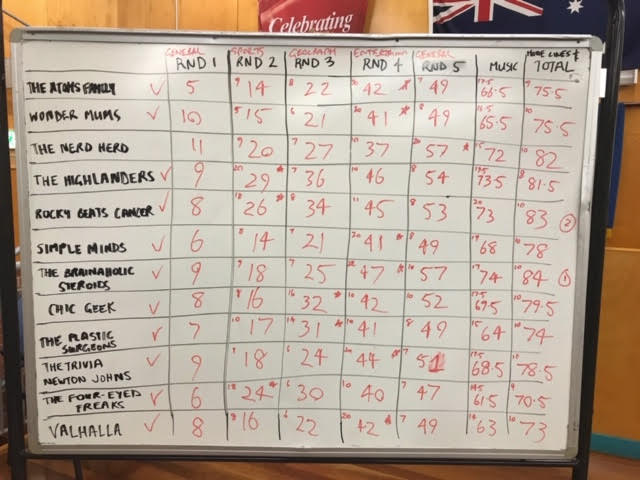 Celebrating
GENERAL SPORTS GEOGRAPH ENTERTAINM GENERAL MOVIE LINES &
RND 1 RND 2 RND 3 RND 4 RND 5 MUSIC TOTAL
THE ATOMS FAMILY ✓ 5 9 14 8 22 20 42 * 7 49 17.5 66.5 9 75.5
WONDER MUMS ✓ 10 5 15 6 21 20 41 * 8 49 16.5 65.5 10 75.5
THE NERD HERD 11 9 20 7 27 10 37 20 57 * 15 72 10 82
THE HIGHLANDERS ✓ 9 20 29 * 7 36 10 46 8 54 19.5 73.5 8 81.5
ROCKY BEATS CANCER ✓ 8 18 26 * 8 34 11 45 8 53 20 73 10 83 2
SIMPLE MINDS ✓ 6 8 14 7 21 20 41 * 8 49 19 68 10 78
THE BRAINAHOLIC
STEROIDS ✓ 9 9 18 7 25 22 47 * 10 57 17 74 10 84 1
CHIC GEEK ✓ 8 8 16 16 32 * 10 42 10 52 17.5 69.5 10 79.5
THE PLASTIC
SURGEONS ✓ 7 10 17 14 31 * 10 41 8 49 15 64 10 74
THE TRIVIA
NEWTON JOHNS ✓ 9 9 18 6 24 20 44 * 7 51 17.5 68.5 10 78.5
THE FOUR-EYED
FREAKS ✓ 6 18 24 * 6 30 10 40 7 47 14.5 61.5 9 70.5
VALHALLA ✓ 8 8 16 6 22 20 42 * 7 49 14 63 10 73